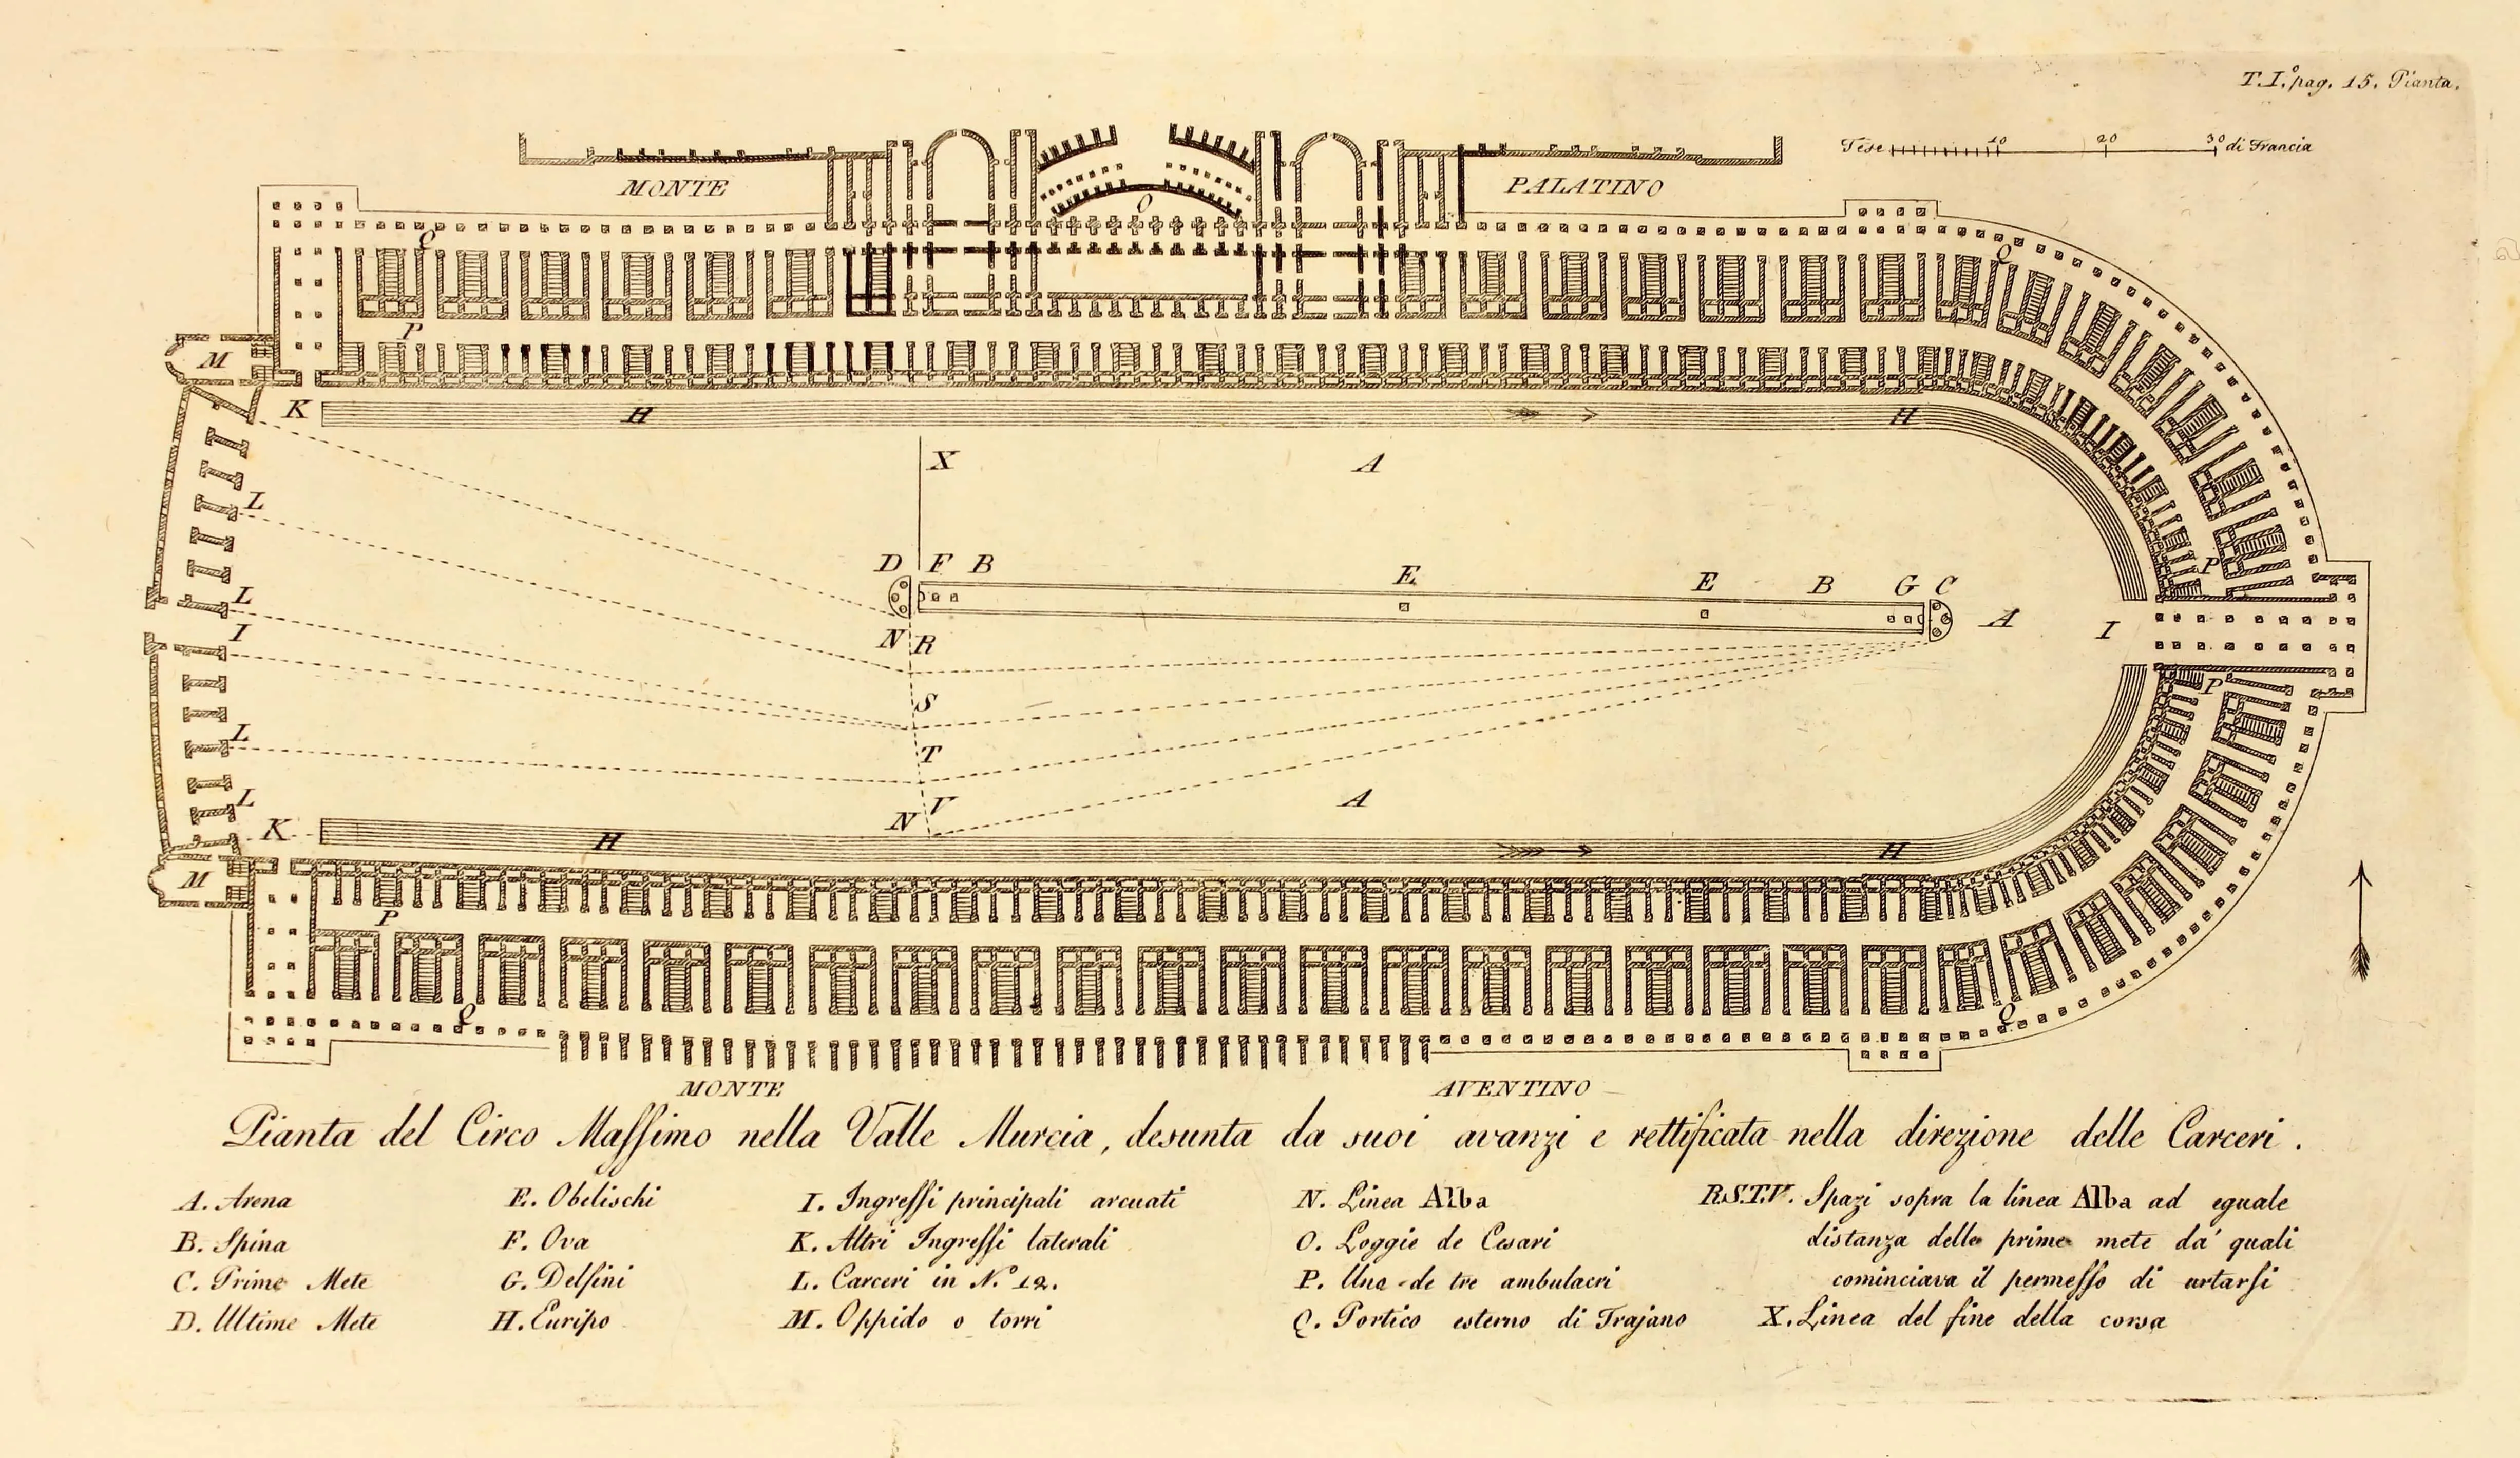 T. I.º pag. 15. Pianta.
Tese 10 20 30 di Francia
MONTE PALATINO
O
Q Q
P
M
K H H
X A
L
D F B E E B G C
L
I N R A I
P
S P
L T
L V A
K N H H
M
P
Q Q
MONTE AVENTINO
Pianta del Circo Maſsimo nella Valle Murcia, desunta da suoi avanzi e rettificata nella direzione delle Carceri.
A. Arena
B. Spina
C. Prime Mete
D. Ultime Mete
E. Obelischi
F. Ova
G. Delfini
H. Euripo
I. Ingreſsi principali arcuati
K. Altri Ingreſsi laterali
L. Carceri in N.º 12.
M. Oppido o torri
N. Linea Alba
O. Loggie de Cesari
P. Uno de tre ambulacri
Q. Portico esterno di Trajano
R.S.T.V. Spazi sopra la linea Alba ad eguale
distanza delle prime mete da' quali
cominciava il permeſso di urtarsi
X. Linea del fine della corsa